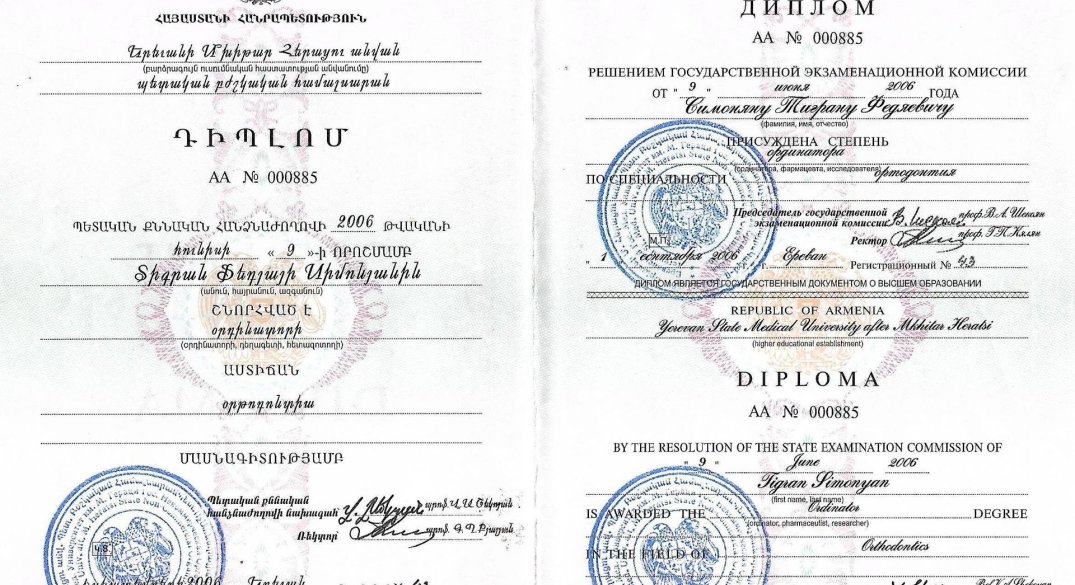 ՀԱՅԱՍՏԱՆԻ ՀԱՆՐԱՊԵՏՈՒԹՅՈՒՆ
Երևանի Մխիթար Հերացու անվան
(բարձրագույն ուսումնական հաստատության անվանումը)
պետական բժշկական համալսարան
ԴԻՊԼՈՄ
АА № 000885
ՊԵՏԱԿԱՆ ՔՆՆԱԿԱՆ ՀԱՆՁՆԱԺՈՂՈՎԻ 2006 ԹՎԱԿԱՆԻ
հունիսի « 9 »-ի ՈՐՈՇՄԱՄԲ
Տիգրան Ֆեդյայի Սիմոնյանին
(անուն, հայրանուն, ազգանուն)
ՇՆՈՐՀՎԱԾ Է
օրդինատորի
(օրդինատորի, դեղագետի, հետազոտողի)
ԱՍՏԻՃԱՆ
օրթոդոնտիա
ՄԱՍՆԱԳԻՏՈՒԹՅԱՄԲ
Պետական քննական
հանձնաժողովի նախագահ
Ռեկտոր
2006 Երևան 43
ДИПЛОМ
АА № 000885
РЕШЕНИЕМ ГОСУДАРСТВЕННОЙ ЭКЗАМЕНАЦИОННОЙ КОМИССИИ
ОТ " 9 " июня 2006 ГОДА
Симоняну Тиграну Федяевичу
(фамилия, имя, отчество)
ПРИСУЖДЕНА СТЕПЕНЬ
ординатора
(ординатора, фармацевта, исследователя)
ПО СПЕЦИАЛЬНОСТИ ортодонтия
Председатель государственной проф. В.А. Шекоян
экзаменационной комиссии
Ректор проф. Г.П. Кялян
М.П.
" 1 " сентября 2006 г. г. Ереван Регистрационный № 43
ДИПЛОМ ЯВЛЯЕТСЯ ГОСУДАРСТВЕННЫМ ДОКУМЕНТОМ О ВЫСШЕМ ОБРАЗОВАНИИ
REPUBLIC OF ARMENIA
Yerevan State Medical University after Mkhitar Heratsi
(higher educational establishment)
DIPLOMA
AA № 000885
BY THE RESOLUTION OF THE STATE EXAMINATION COMMISSION OF
" 9 " June 2006
Tigran Simonyan
(first name, last name)
IS AWARDED THE Ordinator DEGREE
(ordinator, pharmaceutist, researcher)
IN THE FIELD OF Orthodontics